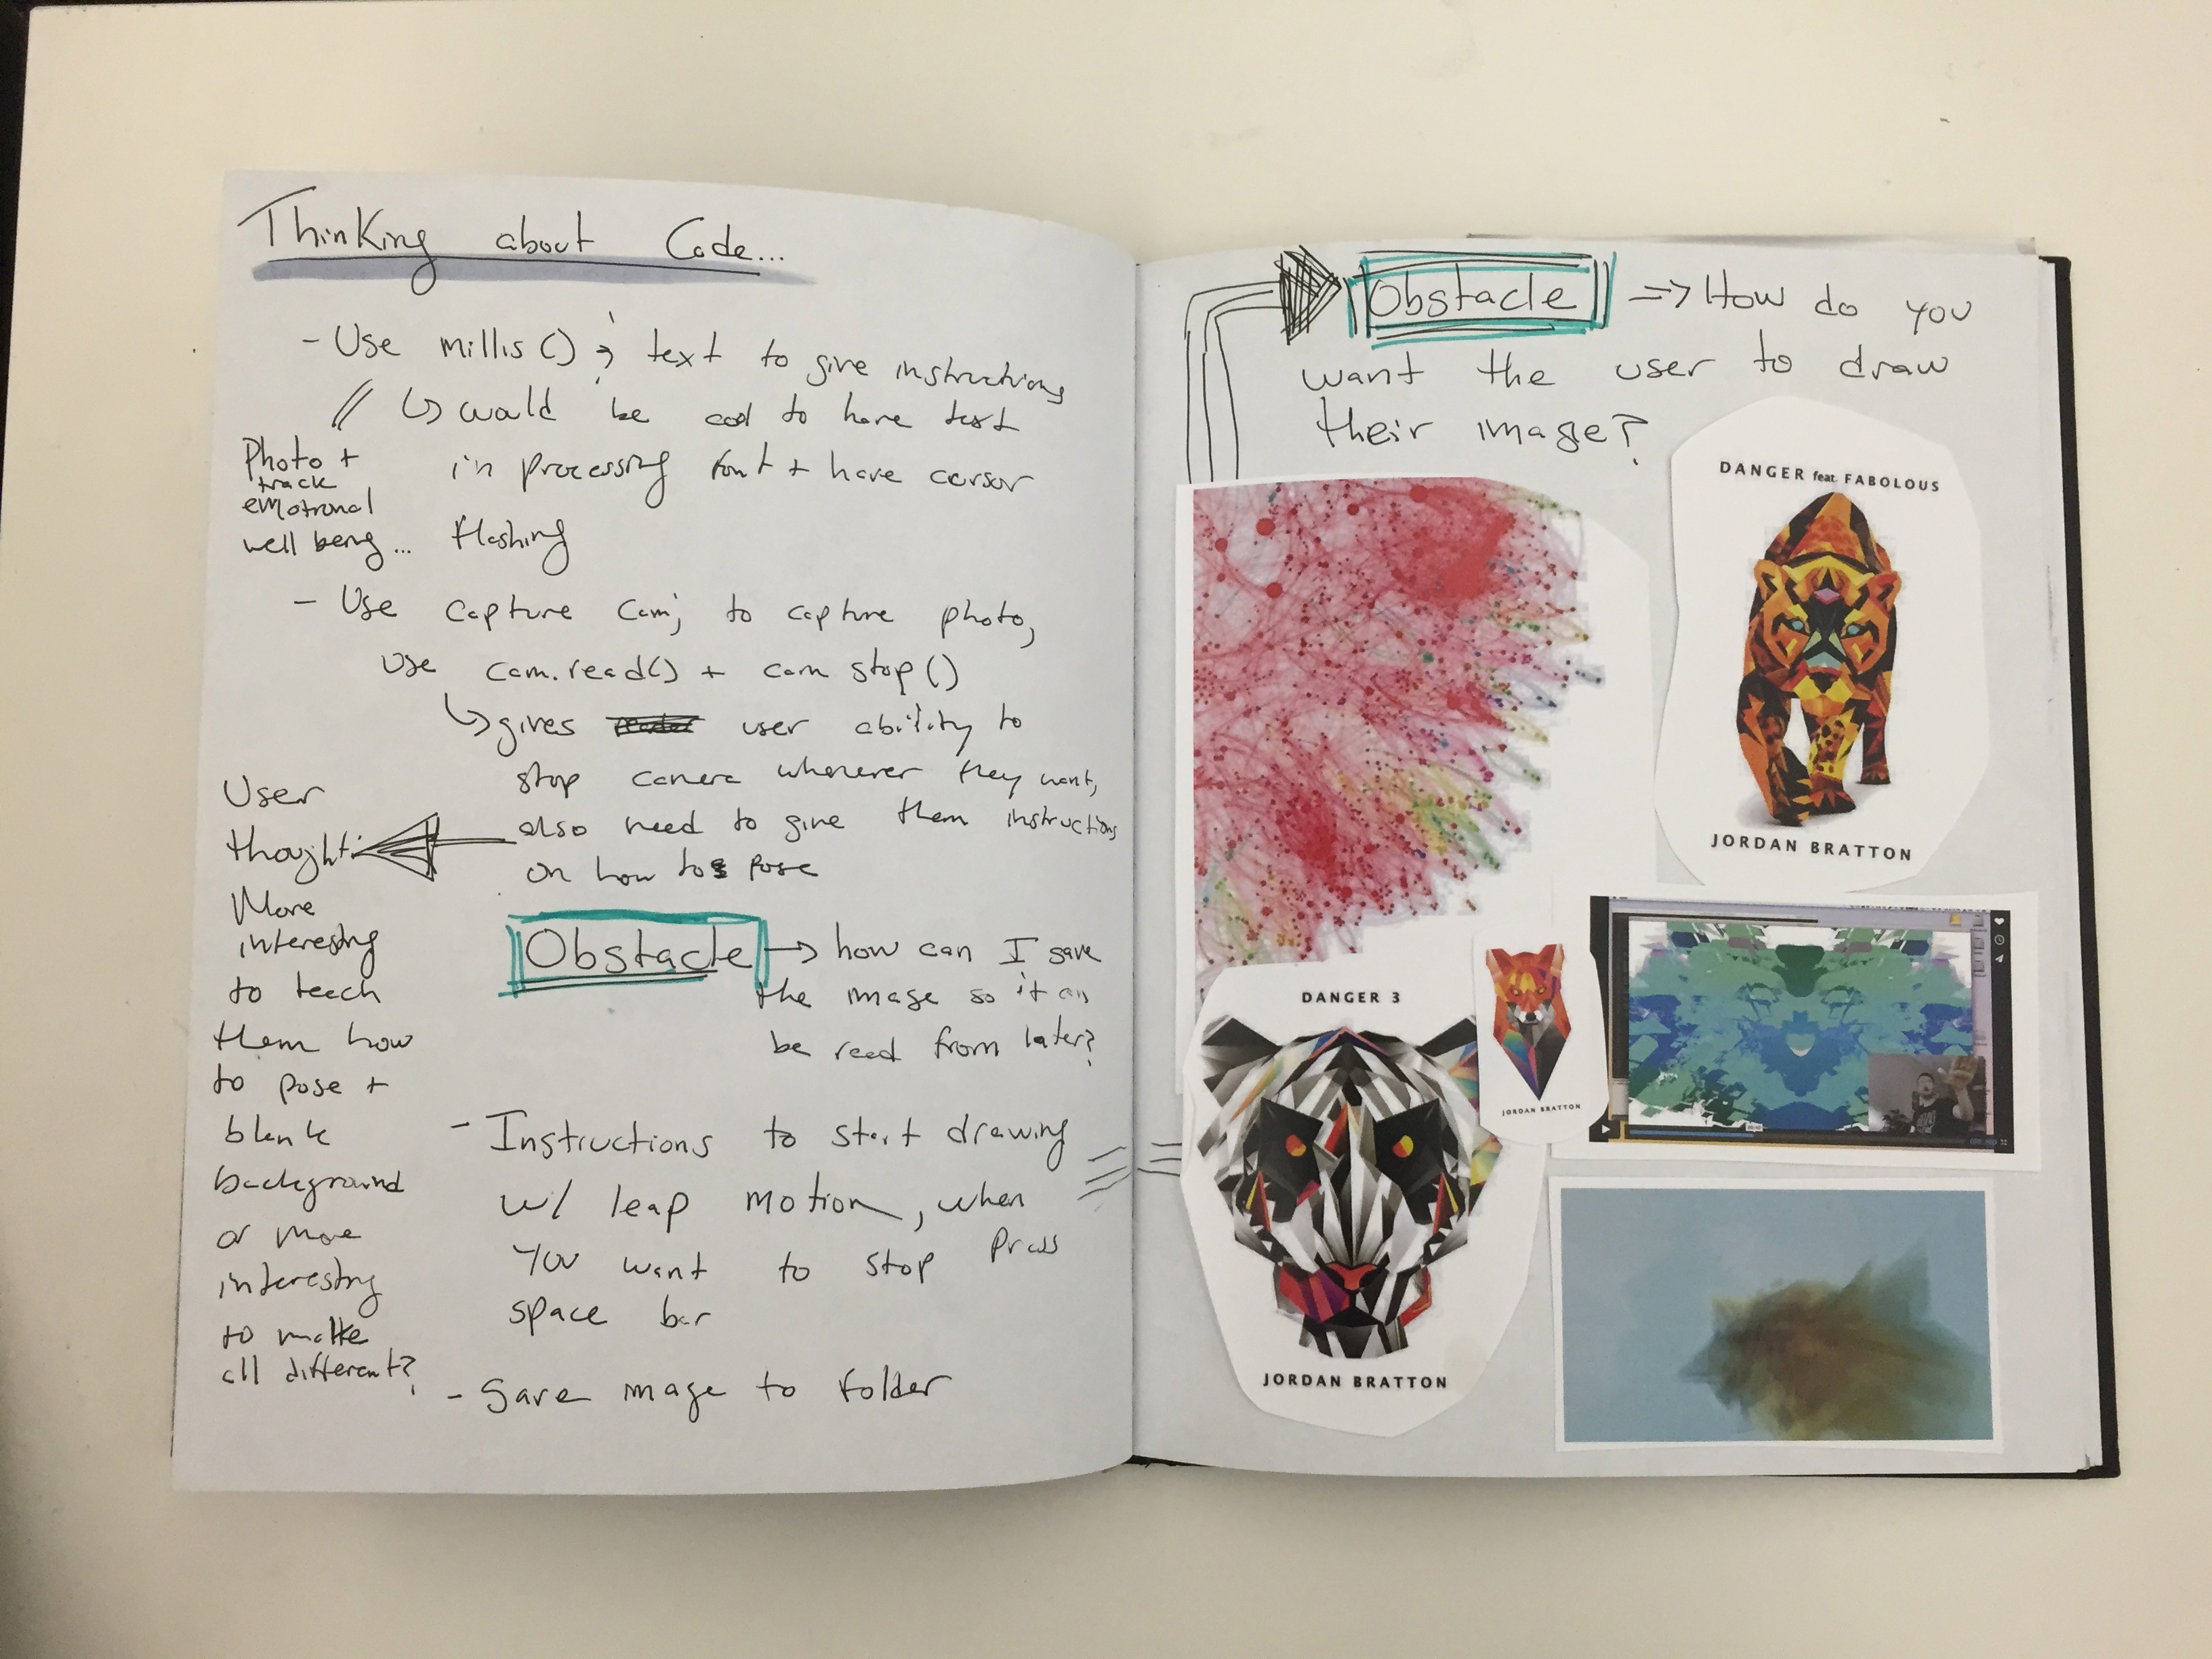 Thinking about Code...
- Use millis() ; text to give instructions
↳ would be cool to have text
in processing font + have cursor
flashing
Photo +
track
emotional
well being...
- Use Capture Cam; to capture photo,
use cam.read() + cam stop()
↳ gives user ability to
stop camera whenever they want,
also need to give them instructions
on how to pose
User
thought:
More
interesting
to teach
them how
to pose +
blank
background
or more
interesting
to make
all different?
Obstacle → how can I save
the image so it can
be read from later?
- Instructions to start drawing
w/ leap motion, when
you want to stop press
space bar
- Save image to folder
Obstacle => How do you
want the user to draw
their image?
DANGER feat. FABOLOUS
JORDAN BRATTON
DANGER 3
JORDAN BRATTON
JORDAN BRATTON